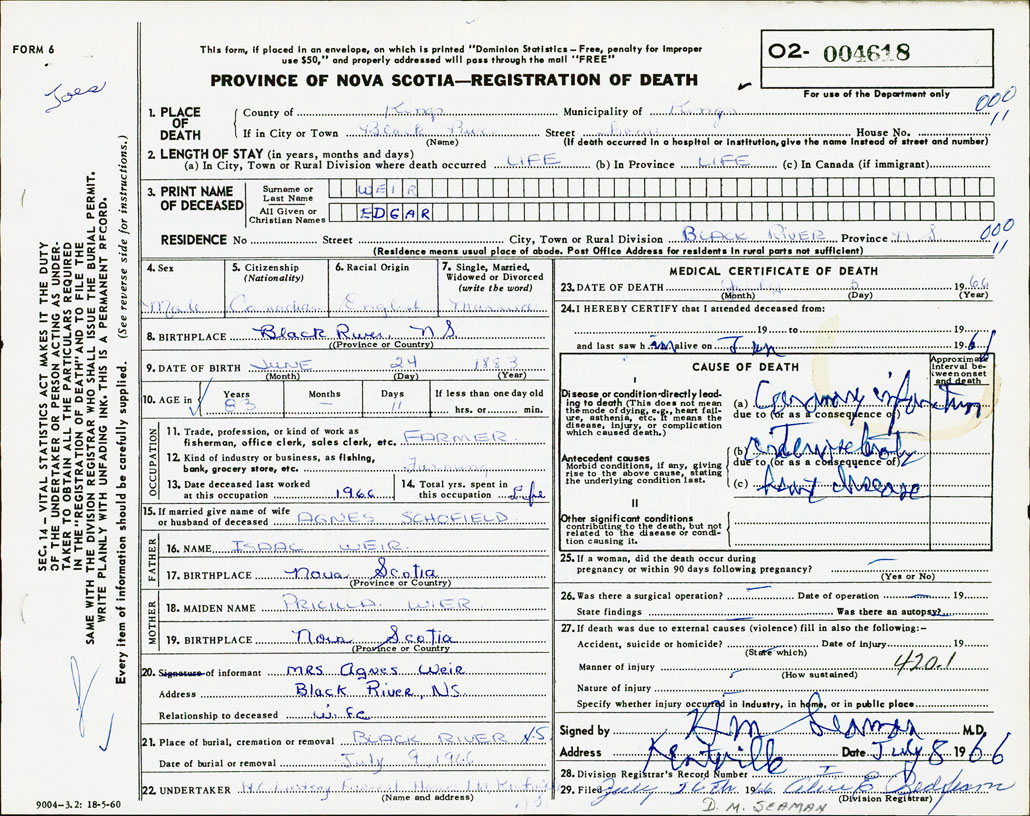 FORM 6
This form, if placed in an envelope, on which is printed "Dominion Statistics – Free, penalty for improper
use $50," and properly addressed will pass through the mail "FREE"
PROVINCE OF NOVA SCOTIA—REGISTRATION OF DEATH
O2- 004618
For use of the Department only
000
11
1. PLACE OF DEATH
County of Kings Municipality of Kings
If in City or Town Black River Street House No.
(Name) (If death occurred in a hospital or institution, give the name instead of street and number)
2. LENGTH OF STAY (in years, months and days)
(a) In City, Town or Rural Division where death occurred LIFE (b) In Province LIFE (c) In Canada (if immigrant)
3. PRINT NAME OF DECEASED
Surname or Last Name WEIR
All Given or Christian Names EDGAR
RESIDENCE No Street City, Town or Rural Division BLACK RIVER Province N S
000
11
(Residence means usual place of abode. Post Office Address for residents in rural parts not sufficient)
4. Sex
Male
5. Citizenship
(Nationality)
Canadian
6. Racial Origin
English
7. Single, Married,
Widowed or Divorced
(write the word)
Married
8. BIRTHPLACE Black River, NS
(Province or Country)
9. DATE OF BIRTH JUNE 24 1883
(Month) (Day) (Year)
10. AGE in Years Months Days If less than one day old
83 – 11 hrs. or min.
OCCUPATION
11. Trade, profession, or kind of work as
fisherman, office clerk, sales clerk, etc. FARMER
12. Kind of industry or business, as fishing,
bank, grocery store, etc. Farming
13. Date deceased last worked
at this occupation 1966
14. Total yrs. spent in
this occupation Life
15. If married give name of wife
or husband of deceased AGNES SCHOFIELD
FATHER
16. NAME ISAAC WEIR
17. BIRTHPLACE Nova Scotia
(Province or Country)
MOTHER
18. MAIDEN NAME PRICILLA WIER
19. BIRTHPLACE Nova Scotia
(Province or Country
20. Signature of informant MRS Agnes Weir
Address Black River, NS.
Relationship to deceased Wife
21. Place of burial, cremation or removal BLACK RIVER N.S.
Date of burial or removal July 9, 1966
22. UNDERTAKER
(Name and address)
9004–3.2: 18-5-60
MEDICAL CERTIFICATE OF DEATH
23. DATE OF DEATH July 5 1966
(Month) (Day) (Year)
24. I HEREBY CERTIFY that I attended deceased from:
19 to 19
and last saw him alive on Jan 1961
CAUSE OF DEATH
Approximate
interval be-
tween onset
and death
I
Disease or condition directly lead-
ing to death (This does not mean
the mode of dying, e.g., heart fail-
ure, asthenia, etc. It means the
disease, injury, or complication
which caused death.)
(a) Coronary infarction
due to (or as a consequence of)
Antecedent causes
Morbid conditions, if any, giving
rise to the above cause, stating
the underlying condition last.
(b)
due to (or as a consequence of)
(c) heart disease
II
Other significant conditions
contributing to the death, but not
related to the disease or condi-
tion causing it.
25. If a woman, did the death occur during
pregnancy or within 90 days following pregnancy?
(Yes or No)
26. Was there a surgical operation? Date of operation 19
State findings Was there an autopsy?
27. If death was due to external causes (violence) fill in also the following:–
Accident, suicide or homicide? Date of injury 19
(State which)
Manner of injury 420.1
(How sustained)
Nature of injury
Specify whether injury occurred in industry, in home, or in public place
Signed by Seaman M.D.
Address Kentville Date July 8 1966
28. Division Registrar's Record Number
29. Filed July 26th 1966
(Division Registrar)
D. M. SEAMAN
SEC. 14 – VITAL STATISTICS ACT MAKES IT THE DUTY
OF THE UNDERTAKER OR PERSON ACTING AS UNDER-
TAKER TO OBTAIN ALL THE PARTICULARS REQUIRED
IN THE "REGISTRATION OF DEATH" AND TO FILE THE
SAME WITH THE DIVISION REGISTRAR WHO SHALL ISSUE THE BURIAL PERMIT.
WRITE PLAINLY WITH UNFADING INK. THIS IS A PERMANENT RECORD.
Every item of information should be carefully supplied. (See reverse side for instructions.)